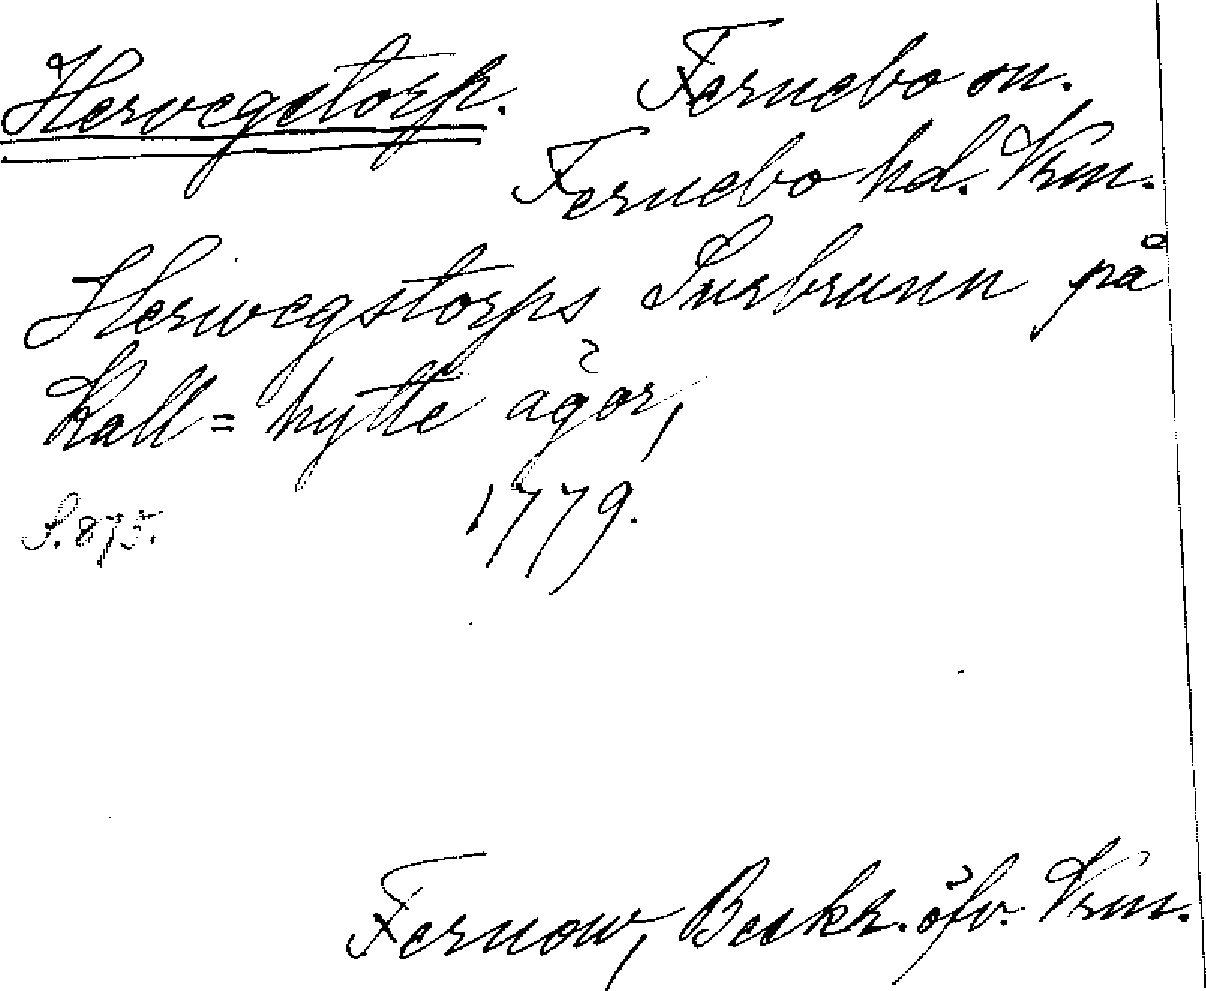 Herwegstorp. Fernebo sn.
Fernebo hd. Vrm.
Herwegstorps Surbrunn på
Kall= hytte ägor,
S. 875. 1779.
Fernow, Beskr. öfv. Vrm.